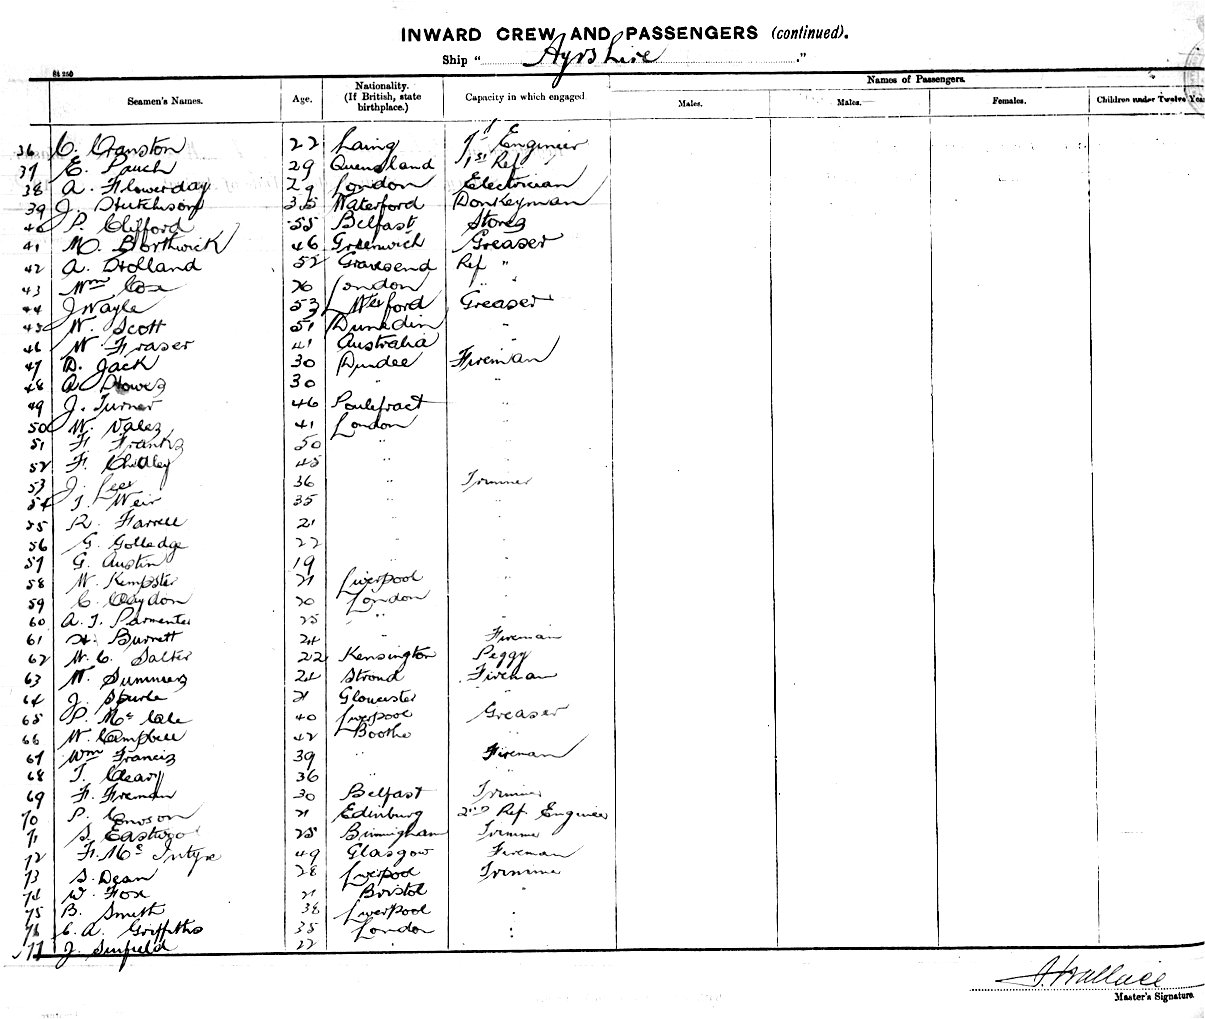 INWARD CREW AND PASSENGERS (continued).
Ship "Ayrshire"
Seamen's Names. Age. Nationality. (If British, state birthplace.) Capacity in which engaged Names of Passengers.
Males. Males. Females. Children under Twelve Years
36 C. Cranston 22 Laing Engineer
37 E. Pauch 29 Queensland 1st Ref
38 A. Flowerday 29 London Electrician
39 J. Hutchison 35 Waterford Donkeyman
40 P. Clifford 55 Belfast Stores
41 M. Borthwick 46 Greenwich Greaser
42 A. Holland 52 Gravesend Ref "
43 Wm Cox 26 London "
44 J Nayle 53 Wexford Greaser
45 W. Scott 51 Dunedin "
46 W. Fraser 41 Australia
47 D. Jack 30 Dundee Fireman
48 A. Howes 30 " "
49 J. Turner 46 Poulefract "
50 W. Vales 41 London "
51 F. Franks 50 " "
52 F. Chitley 45 " "
53 J. Lees 36 " Trimmer
54 J. Weir 35 " "
55 R. Farrell 21 " "
56 G. Golledge 22 "
57 G. Austin 19 " "
58 W. Kempster 21 Liverpool "
59 C. Claydon 20 London "
60 A. J. Parmenter 25 "
61 H. Burnett 24 " Fireman
62 W. C. Salter 22 Kensington Peggy
63 W. Summers 24 Strond Fireman
64 J. Spurle 21 Gloucester "
65 P. McCabe 40 Liverpool Greaser
66 W. Campbell 42 Boothe
67 Wm Francis 39 " Fireman
68 T. Cleary 36 " "
69 F. Freeman 30 Belfast Trimmer
70 P. 21 Edinburg 2nd Ref. Engineer
71 S. Eastwood 25 Birmingham Trimmer
72 F. McIntyre 49 Glasgow Fireman
73 S. Dean 28 Liverpool Trimmer
74 W. Fox 21 Bristol "
75 B. Smith 38 Liverpool "
76 C. A. Griffiths 35 London "
77 J. Sinfield 22 "
J. Wallace
Master's Signature.